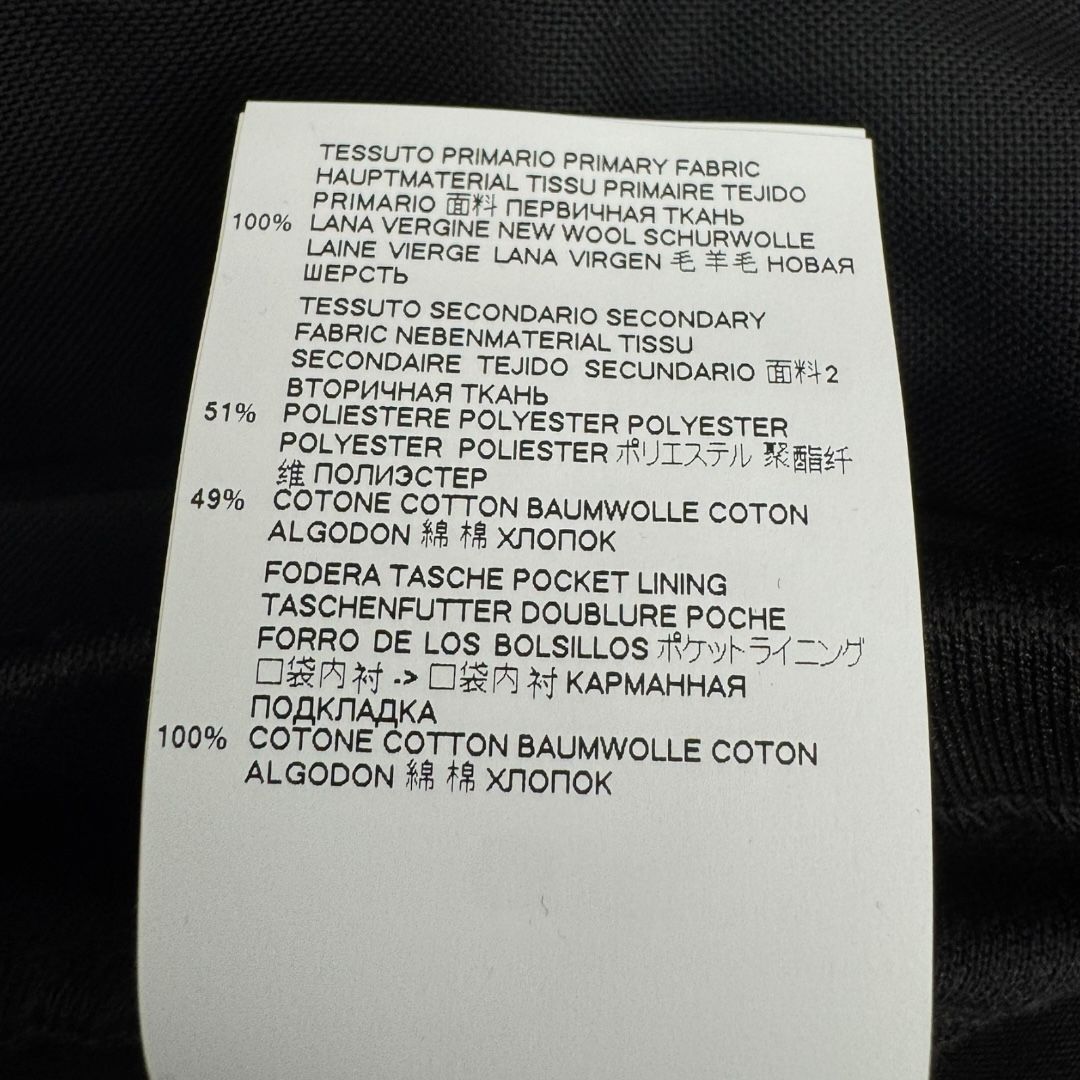 TESSUTO PRIMARIO PRIMARY FABRIC
HAUPTMATERIAL TISSU PRIMAIRE TEJIDO
PRIMARIO 面料 ПЕРВИЧНАЯ ТКАНЬ
100% LANA VERGINE NEW WOOL SCHURWOLLE
LAINE VIERGE LANA VIRGEN 毛 羊毛 НОВАЯ
ШЕРСТЬ
TESSUTO SECONDARIO SECONDARY
FABRIC NEBENMATERIAL TISSU
SECONDAIRE TEJIDO SECUNDARIO 面料2
ВТОРИЧНАЯ ТКАНЬ
51% POLIESTERE POLYESTER POLYESTER
POLYESTER POLIESTER ポリエステル 聚酯纤
维 ПОЛИЭСТЕР
49% COTONE COTTON BAUMWOLLE COTON
ALGODON 綿 棉 ХЛОПОК
FODERA TASCHE POCKET LINING
TASCHENFUTTER DOUBLURE POCHE
FORRO DE LOS BOLSILLOS ポケットライニング
口袋内衬 -> 口袋内衬 КАРМАННАЯ
ПОДКЛАДКА
100% COTONE COTTON BAUMWOLLE COTON
ALGODON 綿 棉 ХЛОПОК